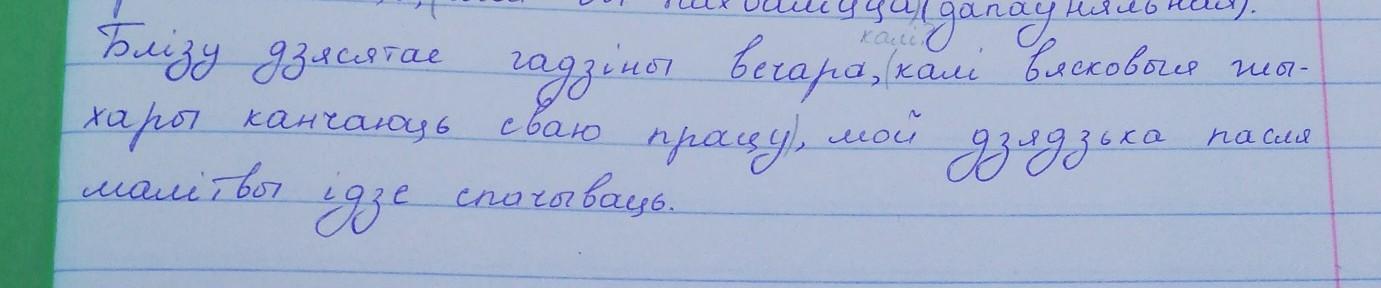 находліцца) (дапаўняльная).
калі?
Блізу дзясятае гадзіны вечара, (калі вясковыя жы-
хары канчаюць сваю працу), мой дзядзька пасля
малітвы ідзе спачываць.